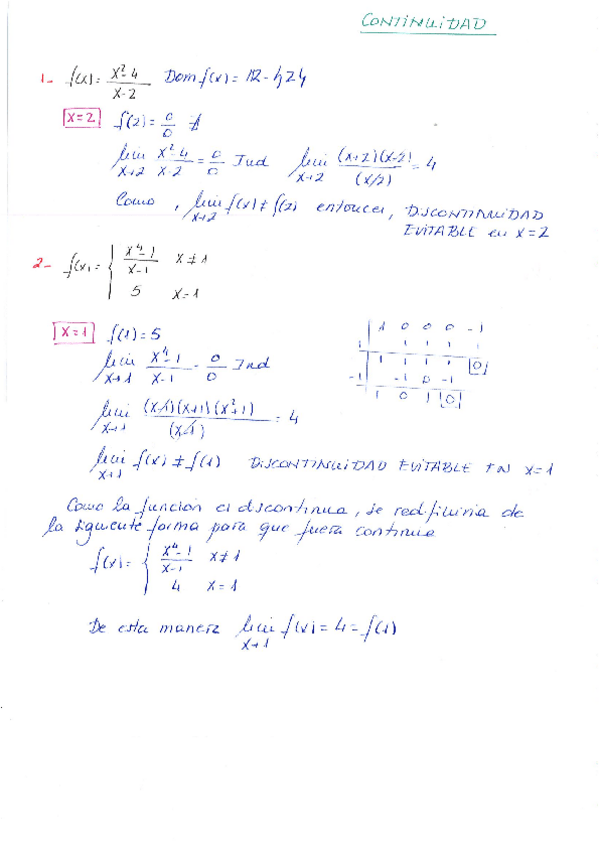 CONTINUIDAD
1- f(x) = (x²-4)/(x-2) Dom f(x) = R - {2}
x=2 f(2) = 0/0 ∄
lim x→2 (x²-4)/(x-2) = 0/0 Ind lim x→2 (x+2)(x-2)/(x-2) = 4
Como, lim x→2 f(x) ≠ f(2) entonces, DISCONTINUIDAD
EVITABLE en x=2
2- f(x) = { (x⁴-1)/(x-1) x≠1
5 x=1
x=1 f(1) = 5
lim x→1 (x⁴-1)/(x-1) = 0/0 Ind
lim x→1 (x-1)(x+1)(x²+1)/(x-1) = 4
lim x→1 f(x) ≠ f(1) DISCONTINUIDAD EVITABLE EN x=1
1 0 0 0 -1
1 1 1 1 1
1 1 1 1 0
-1 -1 0 -1
1 0 1 0
Como la función es discontinua, se redefiniria de
la siguiente forma para que fuera continua
f(x) = { (x⁴-1)/(x-1) x≠1
4 x=1
De esta manera lim x→1 f(x) = 4 = f(1)